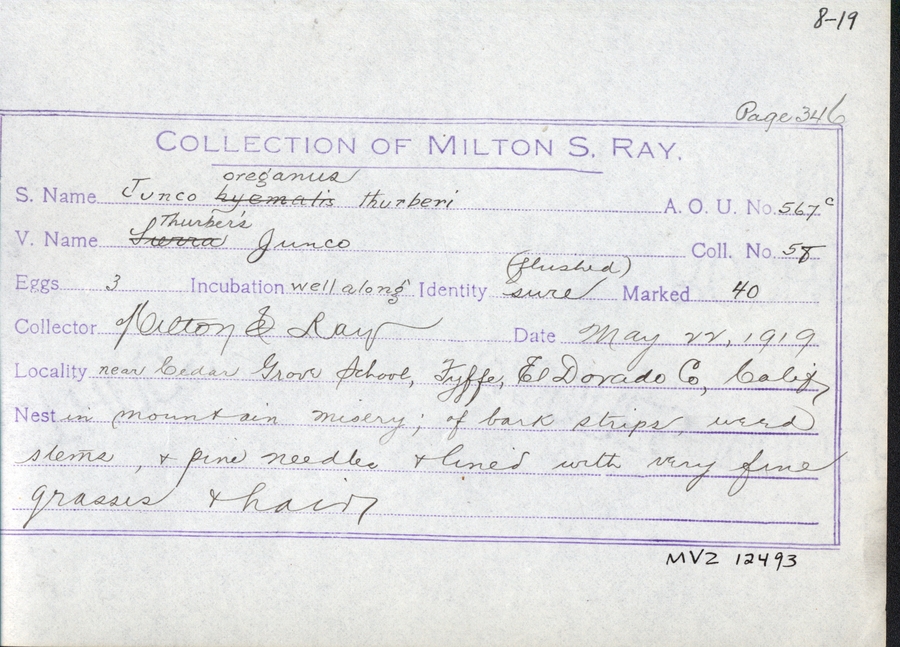 8-19
Page 346
COLLECTION OF MILTON S. RAY.
oreganus
S. Name Junco hyemalis thurberi A. O. U. No. 567c
Thurber's
V. Name Sierra Junco Coll. No. 58
(flushed)
Eggs 3 Incubation well along Identity sure Marked 40
Collector Milton S Ray Date May 22, 1919
Locality near Cedar Grove School, Fyffe, El Dorado Co, Calif,
Nest in mountain misery; of bark strips, weed
stems, & pine needles & lined with very fine
grasses & hair
MVZ 12493